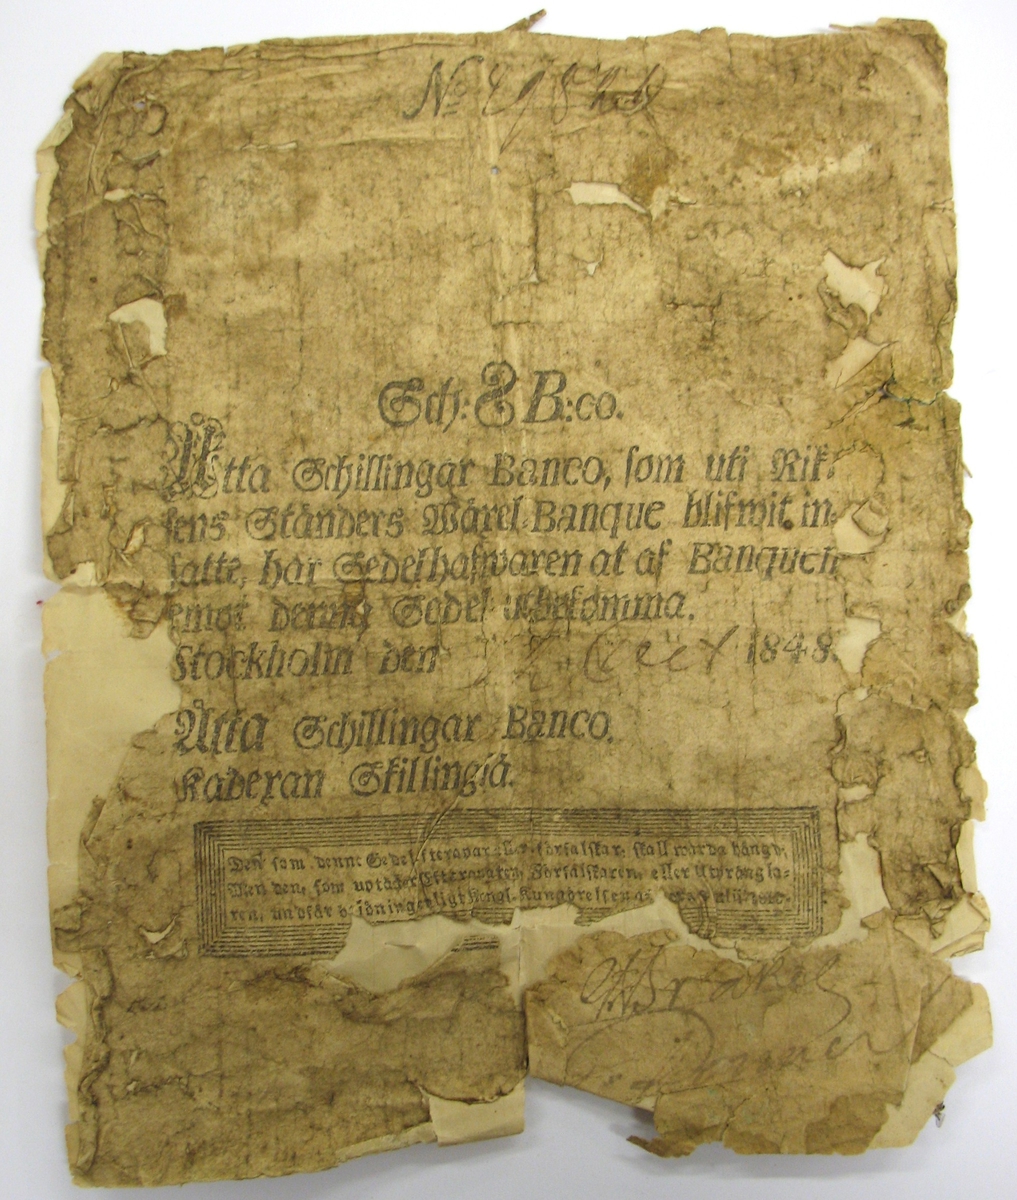 No
Sch: 8 B:co.
Åtta Schillingar Banco, som uti Rik-
sens Ständers Wäxel-Banque blifwit in-
satte, har Sedelhafwaren at af Banquen
emot denna Sedel utbekomma.
Stockholm den 1848.
Åtta Schillingar Banco.
Kadexan Skillingiä.
Den som denne Sedel efterapar eller förfalskar, skall warda hängd;
Men den, som uptäcker Efteraparen, Förfalskaren, eller Utprångla-
ren, undfår belöningen enligt Kongl. Kungörelsen